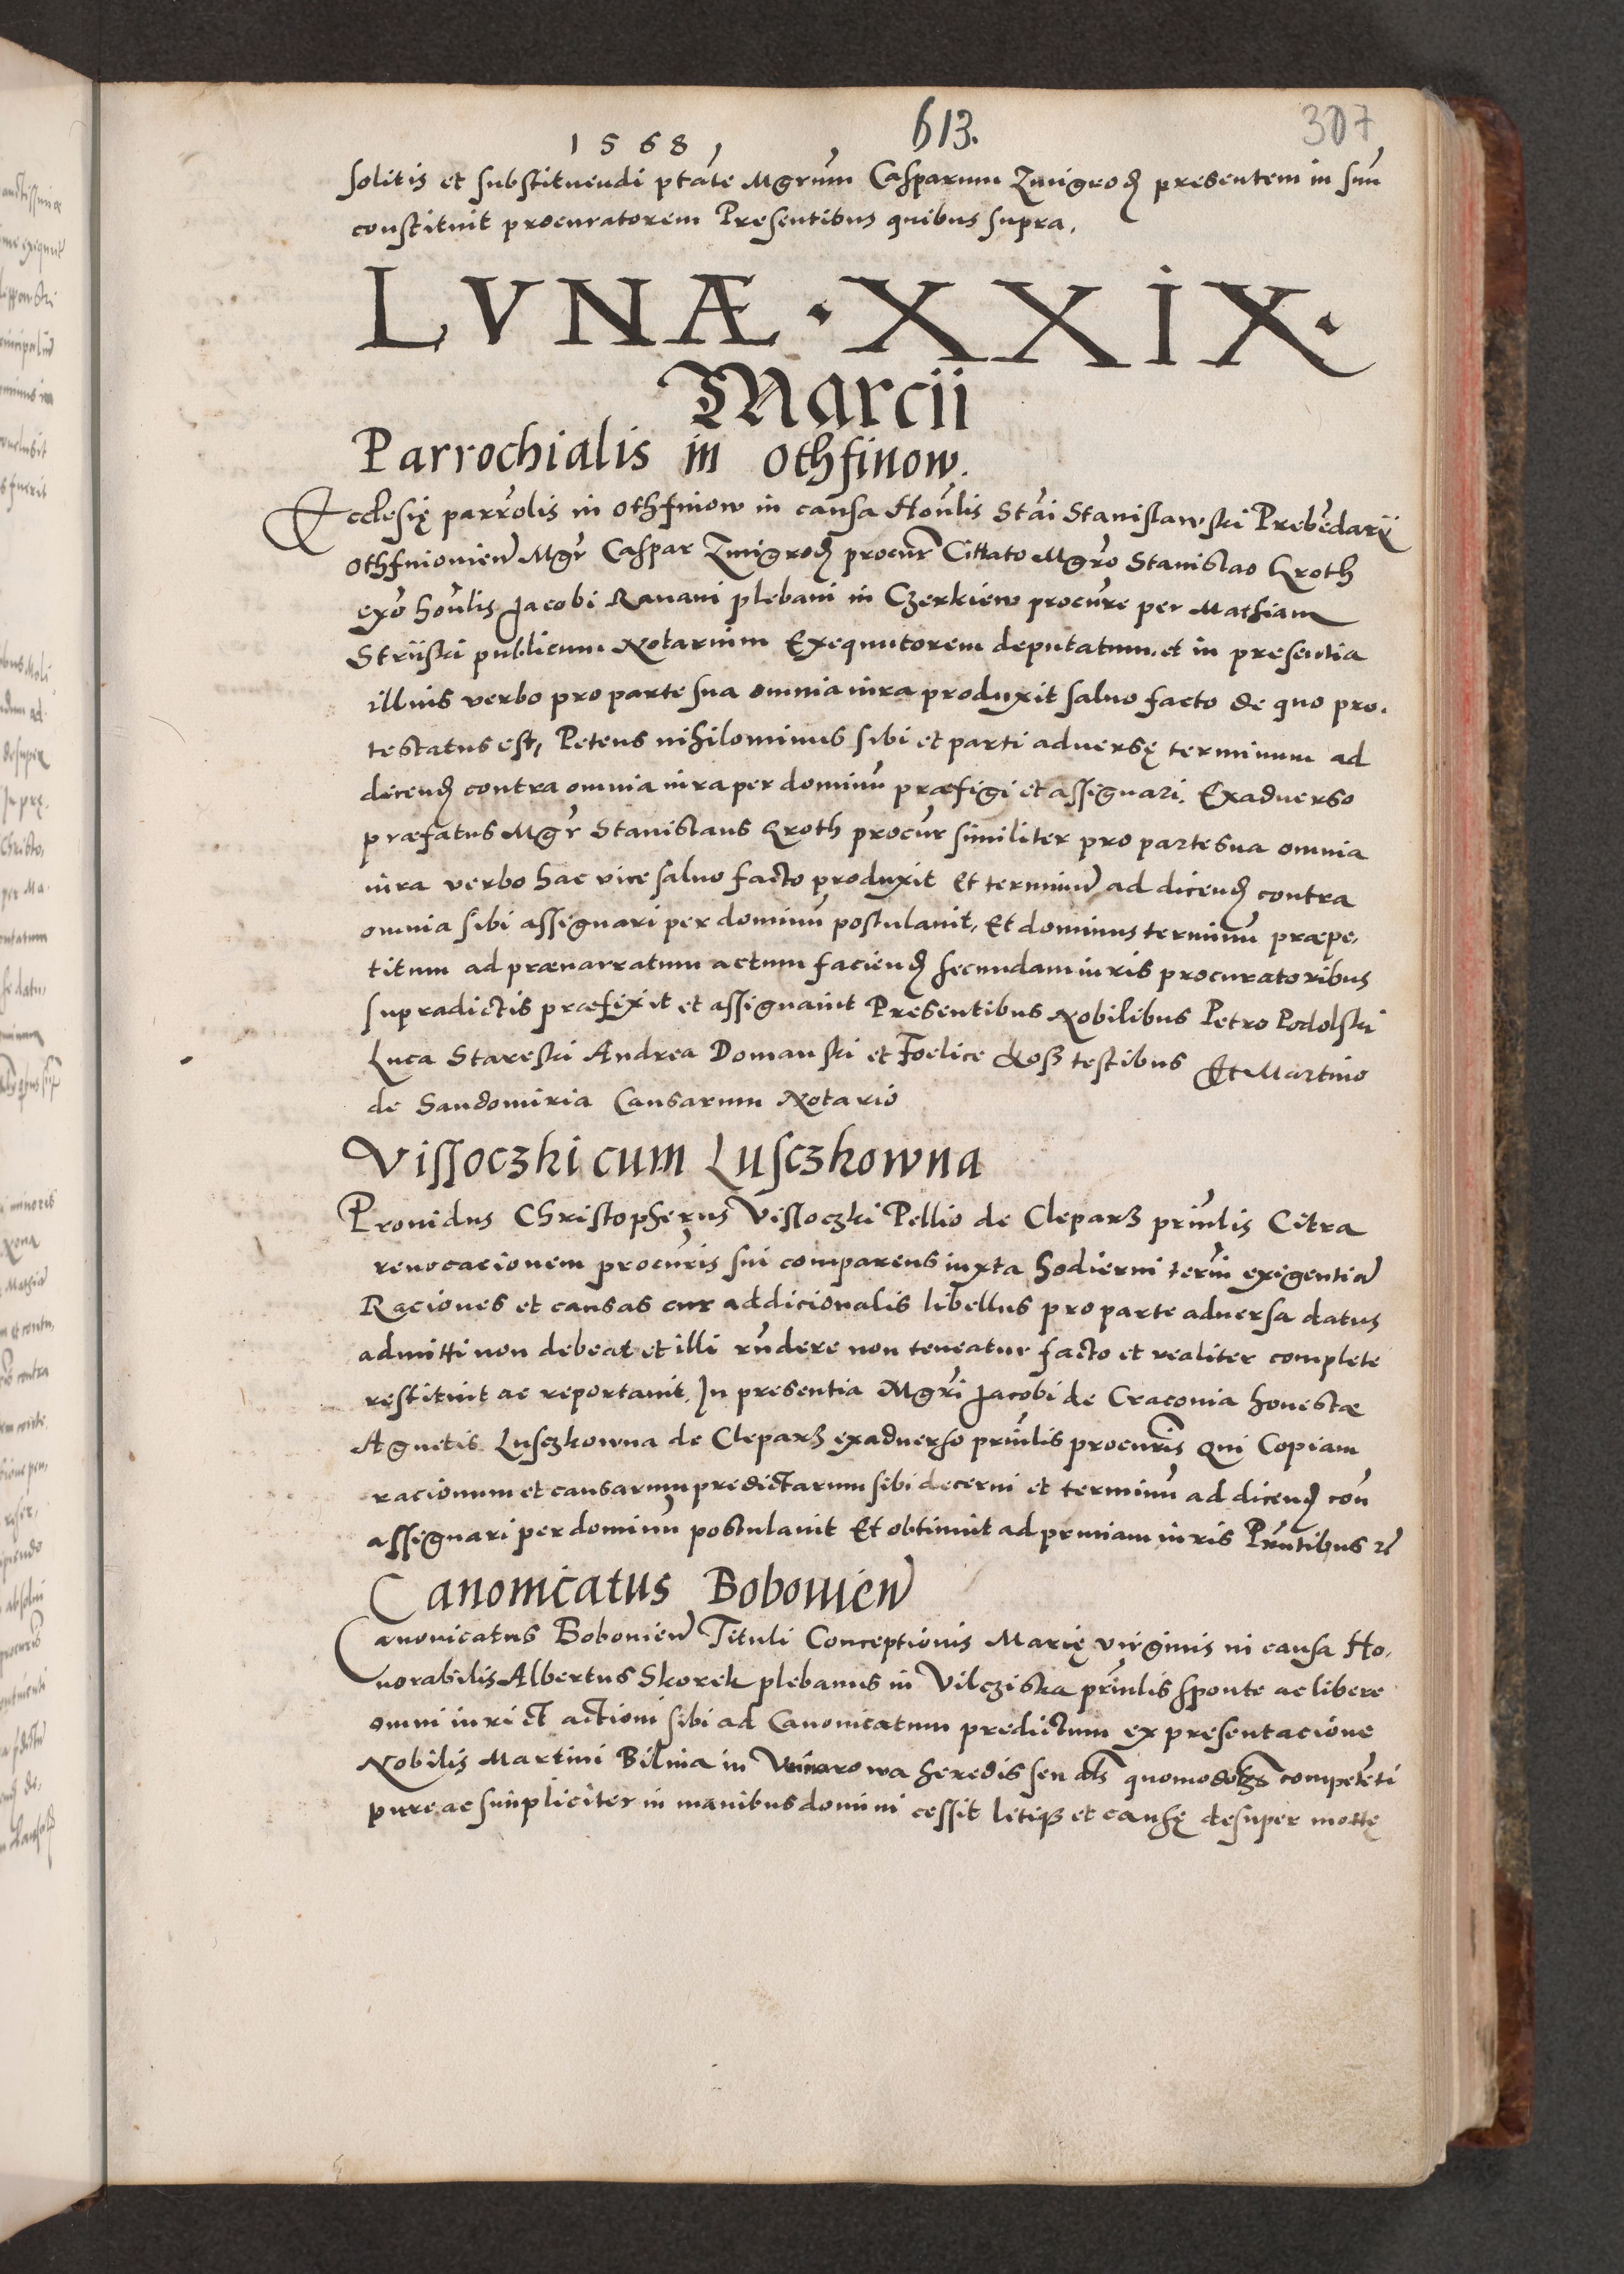 1568,
613.
307
solitis et substituendi ptāte Mgrūm Casparum Zmigrod presentem in suū
constituit procuratorem Presentibus quibus supra.
LVNÆ · XXIX ·
Marcii
Parrochialis in Othfinow.
Ecclesię parrōlis in Othfinow in causa Hon̄lis Stāi Stanislawski Prebēdarÿ
Othfinovien̄ Mgr̄ Caspar Zmigrod procur̄ Cittato Mgrō Stanislao Kroth
exō hon̄lis Jacobi Ravani plebani in Czerkiew procūre per Mathiam
Striiski publicum Notarium Exequutorem deputatum. et in presentia
illius verbo pro parte sua omnia iura produxit saluo facto de quo pro-
testatus est, Petens nihilominus sibi et parti adversę terminum ad
dicend contra omnia iura per dominū præfigi et assignari. Exadverso
præfatus Mgr̄ Stanislaus Kroth procūr similiter pro parte sua omnia
iura verbo hac vice saluo facto produxit Et terminū ad dicend contra
omnia sibi assignari per dominū postulavit, Et dominus terminū præpe-
titum ad prænarratum actum faciend secundam iuris procuratoribus
supradictis præfixit et assignavit Presentibus Nobilibus Petro Podolski
Luca Stareski Andrea Domanski et Foelice testibus Et Martino
de Sandomiria Causarum Notario
Vissoczki cum Lusczkowna
Providus Christopherus Vissoczki Pellio de Cleparz prīnlis Citra
revocacionem procūris sui comparens iuxta hodierni term̄i exigentiā
Raciones et causas cur addicionalis libellus pro parte adversa datus
admitti non debeat et illi rn̄dere non teneatur facto et realiter complete
restituit ac reportavit. In presentia Mgr̄i Jacobi de Cracovia honestæ
Agnetis Lusczkowna de Cleparz exadverso prīnlis procur̄is qui Copiam
racionum et causarum predictarum sibi decerni et terminū ad dicend coñ
assignari per dominū postulavit Et obtinuit ad primam iuris Prn̄tibus
Canonicatus Bobovien̄
Canonicatus Bobovien̄ Tituli Conceptionis Marię virginis in causa Ho-
norabilis Albertus Skorek plebanus in Vilcziska prīnlis sponte ac libere
omni iuri et actioni sibi ad Canonicatum predictum ex presentacione
Nobilis Martini Bilina in heredis seu als̄ competēti
pure ac simpliciter in manibus domini cessit litique et causę desuper mottę